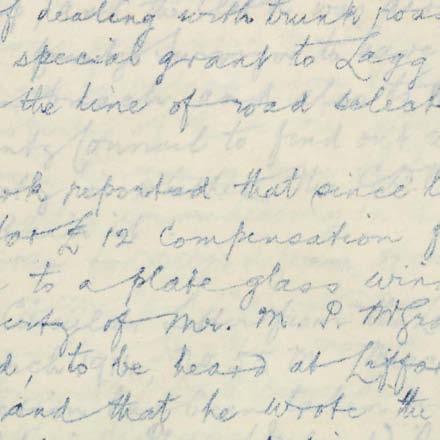 f dealing with trunk roa
special grant to Lagg
the line of road select
ty Council to find out
rk reported that since
for £12 compensation f
to a plate glass win
erty of Mr. M. P. McGr
d, to be heard at Liffor
and that he wrote the